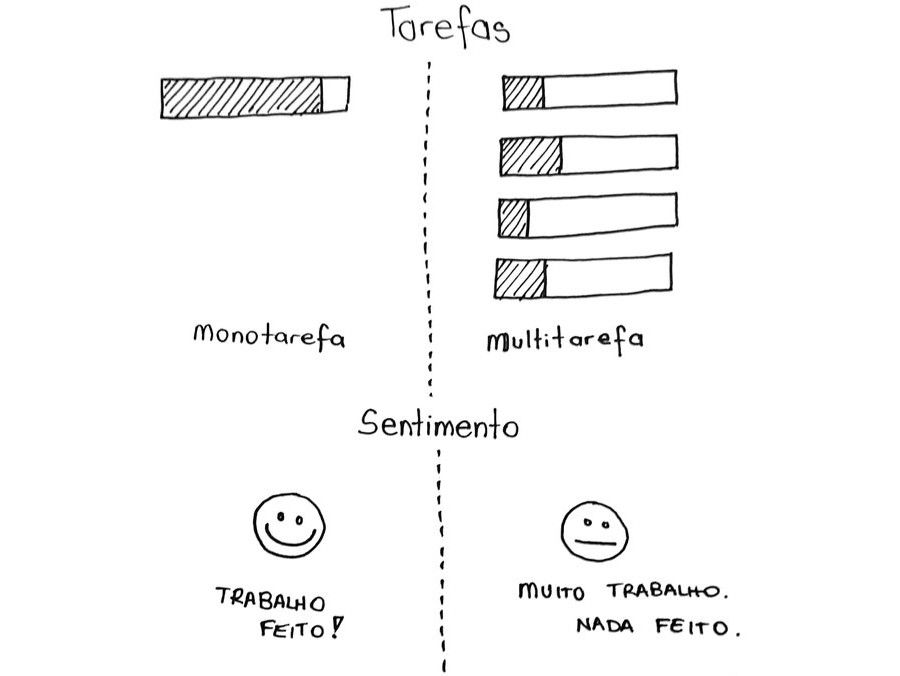 Tarefas
monotarefa
multitarefa
Sentimento
TRABALHO
FEITO!
MUITO TRABALHO.
NADA FEITO.